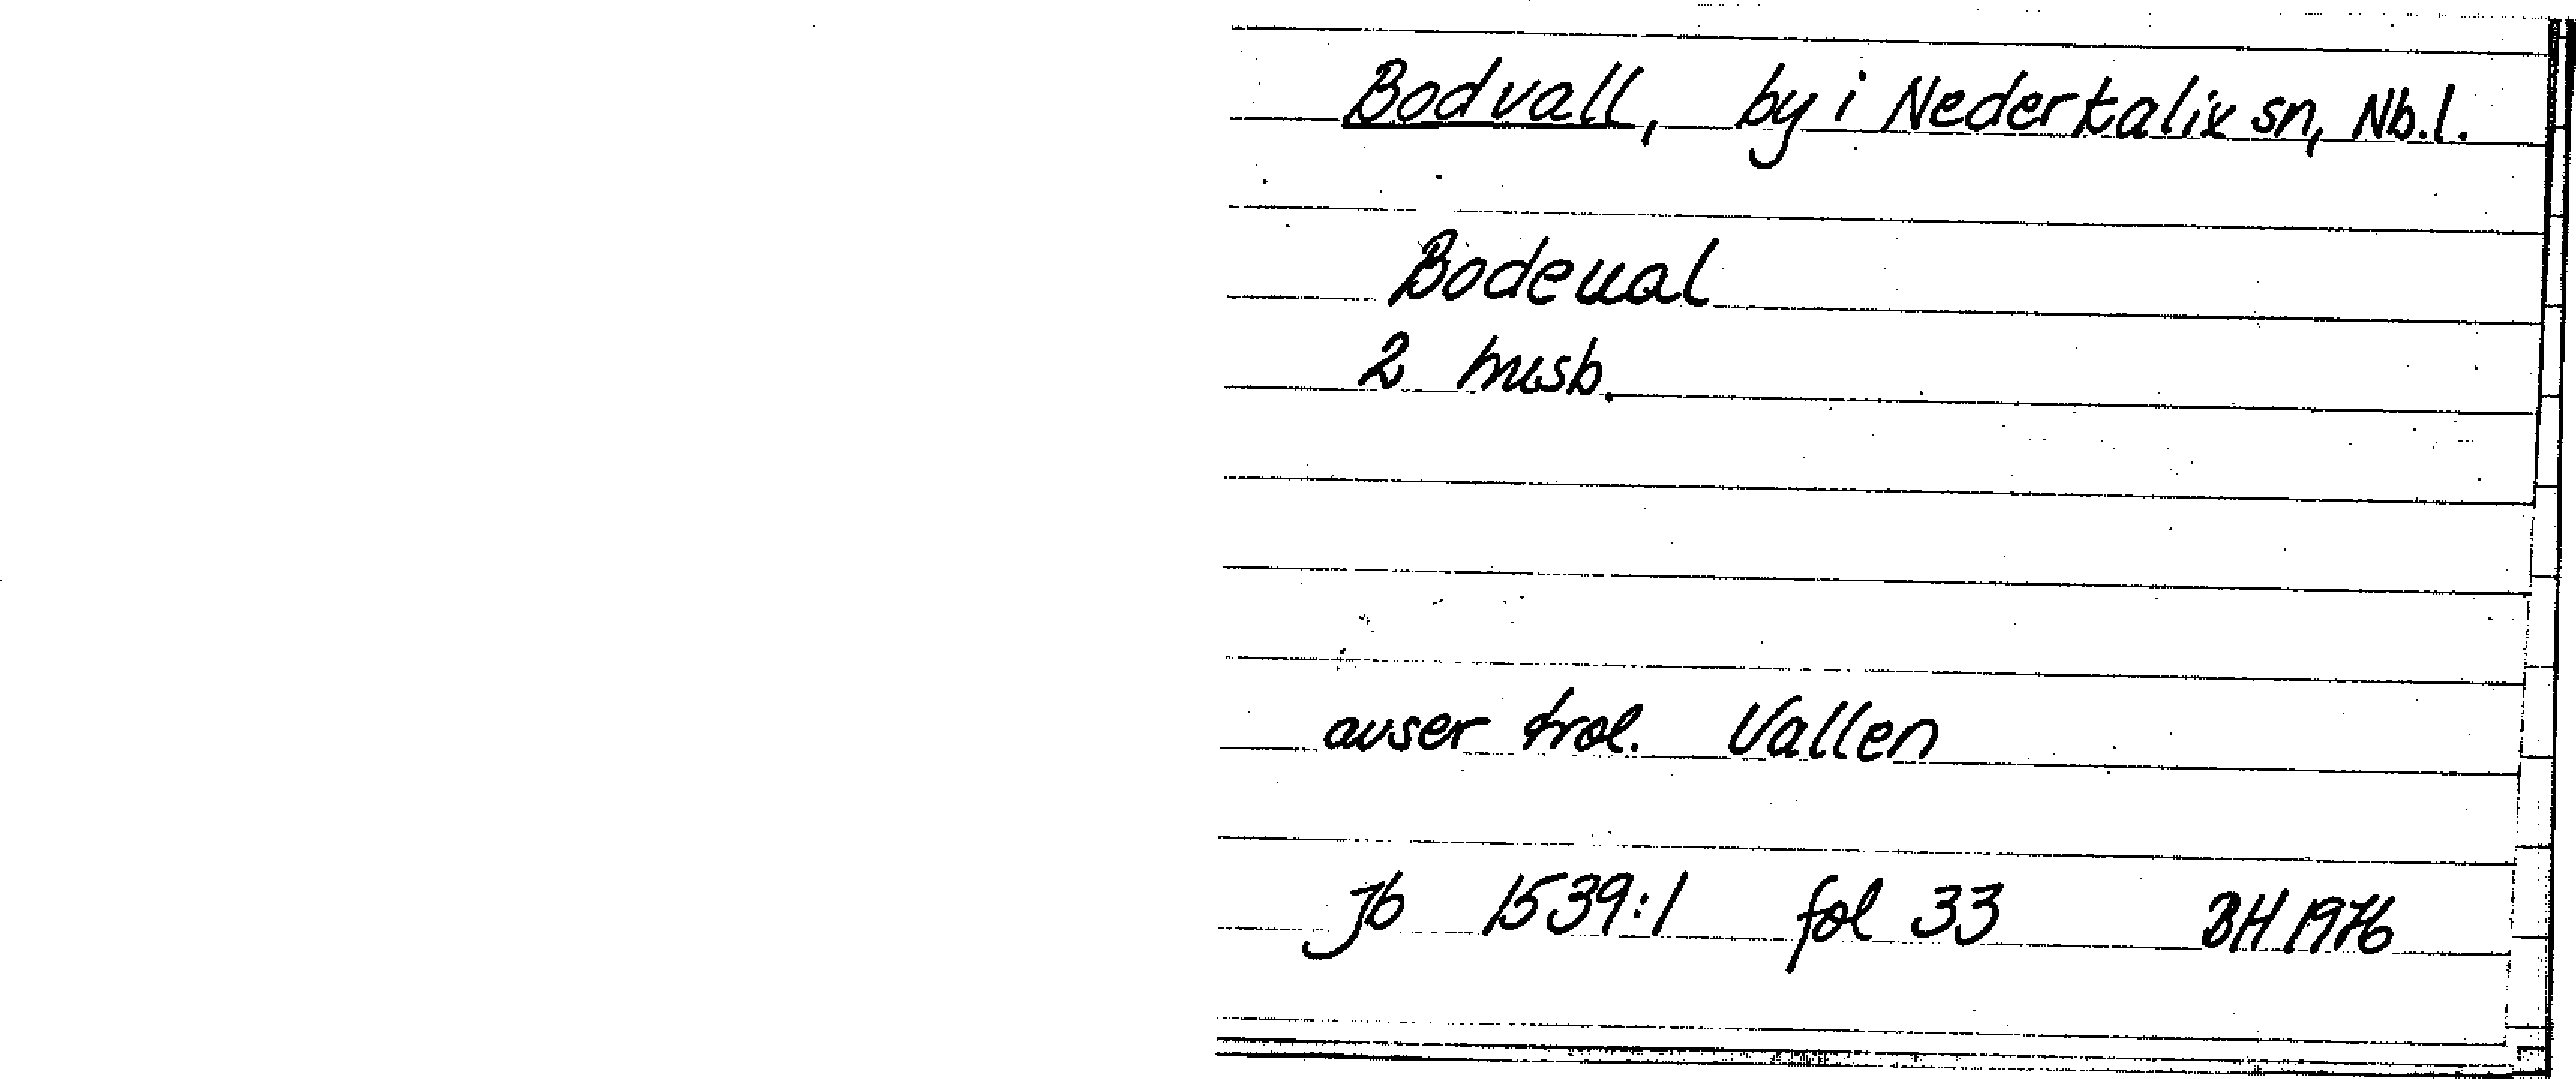 Bodvall, by i Nederkalix sn, Nb.l.
Bodeual
2 husb.
avser trol. Vallen
Jb 1539:1 fol 33 BH 1976